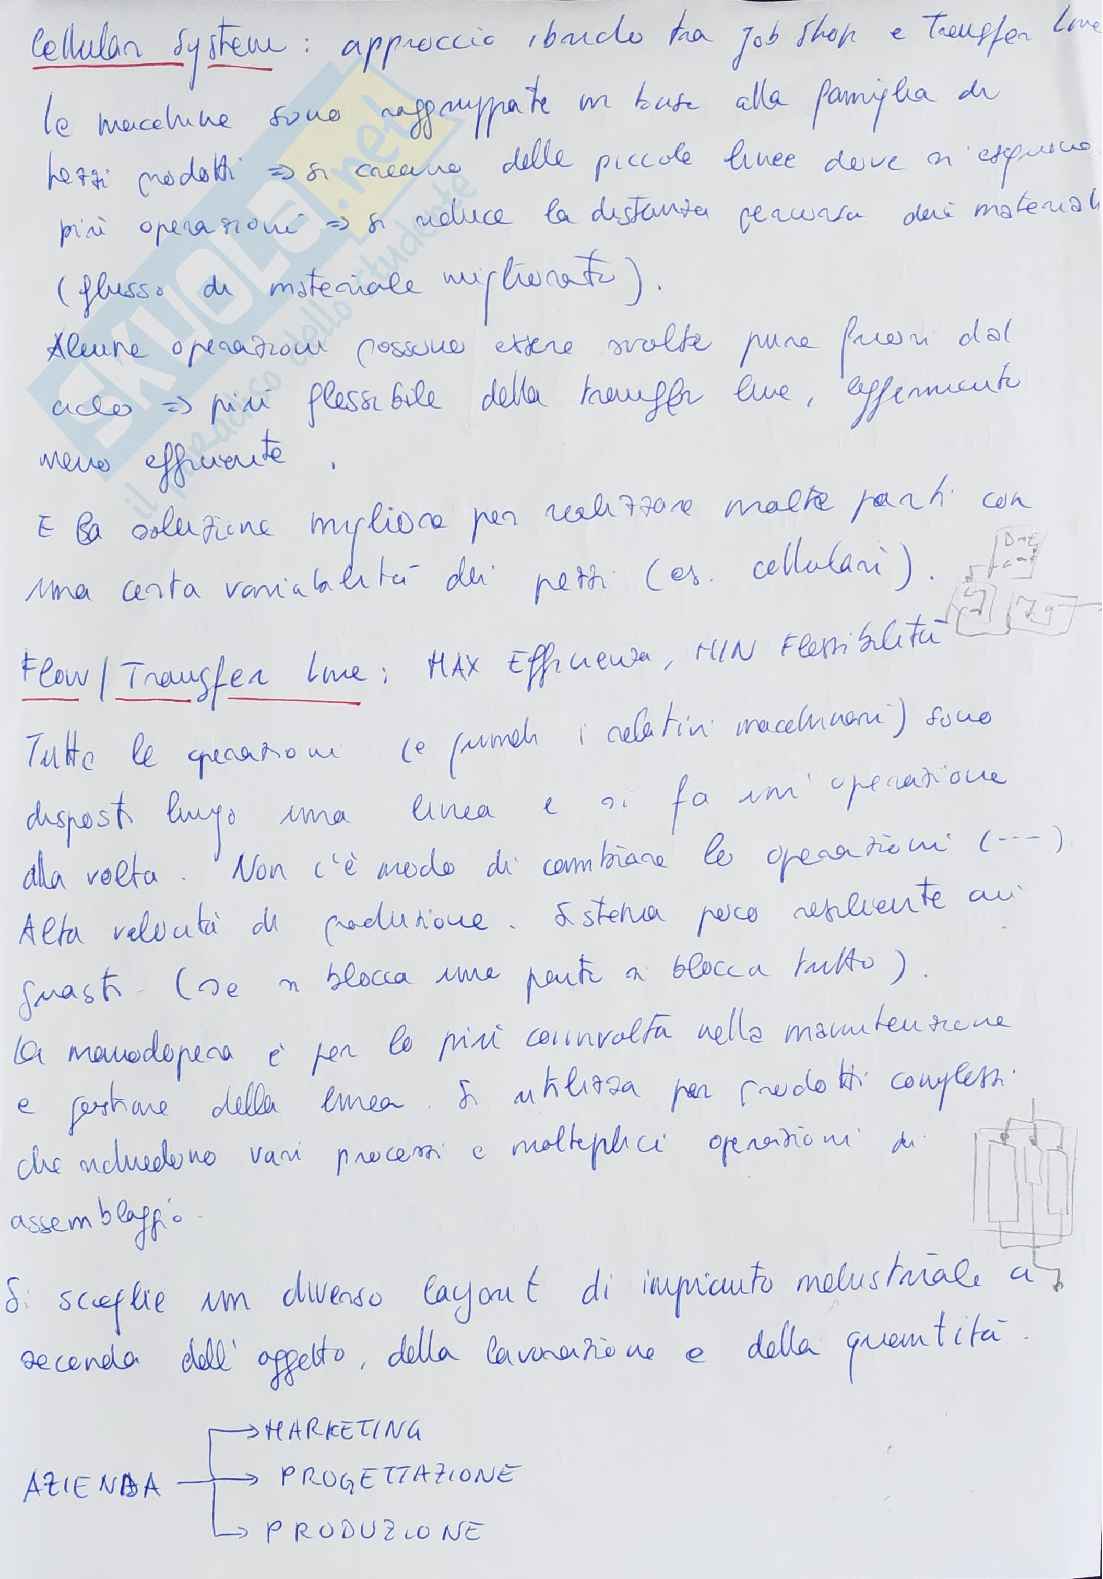 Cellular System: approccio ibrido tra Job Shop e Transfer Line
le macchine sono raggruppate in base alla famiglia di
pezzi prodotti => si creano delle piccole linee dove si eseguono
più operazioni => si riduce la distanza percorsa dai materiali
(flusso di materiale migliorato).
Alcune operazioni possono essere svolte pure fuori dal
ciclo => più flessibile della transfer line,
meno efficiente.
E la soluzione migliore per realizzare molte parti con
una certa variabilità dei pezzi (es. cellulari).
Flow/Transfer line: MAX Efficienza, MIN Flessibilità
Tutte le operazioni (e quindi i relativi macchinari) sono
disposti lungo una linea e si fa un'operazione
alla volta. Non c'è modo di cambiare le operazioni (---)
Alta velocità di produzione. Sistema poco resiliente ai
guasti (se si blocca una parte si blocca tutto).
La manodopera è per lo più coinvolta nella manutenzione
e gestione della linea. Si utilizza per prodotti complessi
che richiedono vari processi e molteplici operazioni di
assemblaggio.
Si sceglie un diverso layout di impianto industriale a
seconda dell'oggetto, della lavorazione e della quantità.
AZIENDA
MARKETING
PROGETTAZIONE
PRODUZIONE
SKUOLA.net
il paradiso dello studente